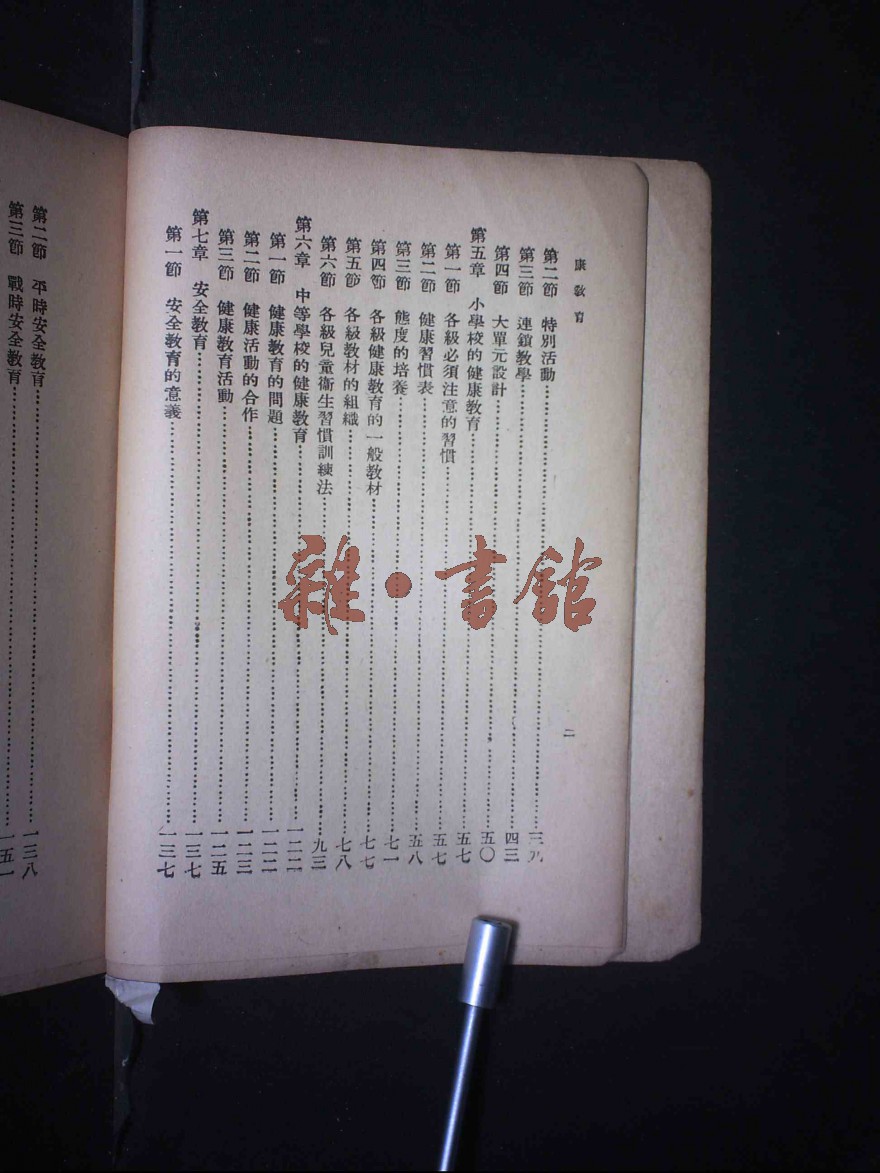 康教育
二
第二節 特別活動……三九
第三節 連鎖教學……四三
第四節 大單元設計……五〇
第五章 小學校的健康教育……五七
第一節 各級必須注意的習慣……五七
第二節 健康習慣表……五八
第三節 態度的培養……七一
第四節 各級健康教育的一般教材……七七
第五節 各級教材的組織……七八
第六節 各級兒童衞生習慣訓練法……九三
第六章 中等學校的健康教育……一二二
第一節 健康教育的問題……一二二
第二節 健康活動的合作……一二三
第三節 健康教育活動……一二五
第七章 安全教育……一三七
第一節 安全教育的意義……一三七
第二節 平時安全教育……一三八
第三節 戰時安全教育……一五一
雜·書館